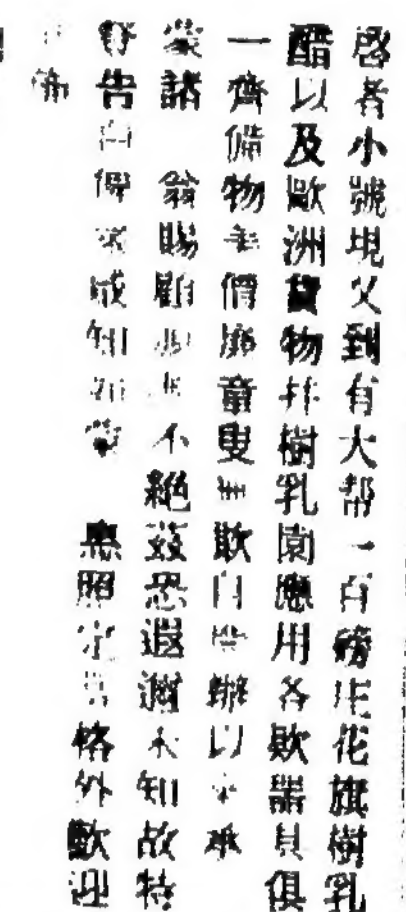 啓者小號現又到有大帮一百磅庄花旗樹乳
醋以及歐洲貨物并樹乳園應用各欵器具俱
一齊備物美價廉童叟無欺自開辦以來承
蒙諸 翁賜顧 不絕茲恐遐邇未知故特
登告白俾衆咸知如蒙 惠照定當格外歡迎
佈